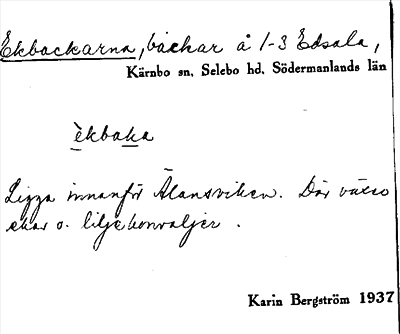 Ekbackarna, backar å 1-3 Edsala,
Kärnbo sn, Selebo hd, Södermanlands län
èkbaka
Ligga innanför Ålansviken. Där växer
ekar o. liljekonvaljer.
Karin Bergström 1937